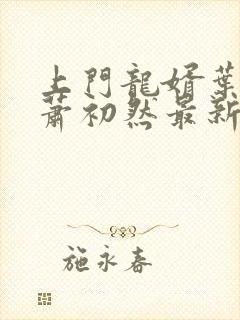 上門龍婿葉
蕭初然最新
施永春